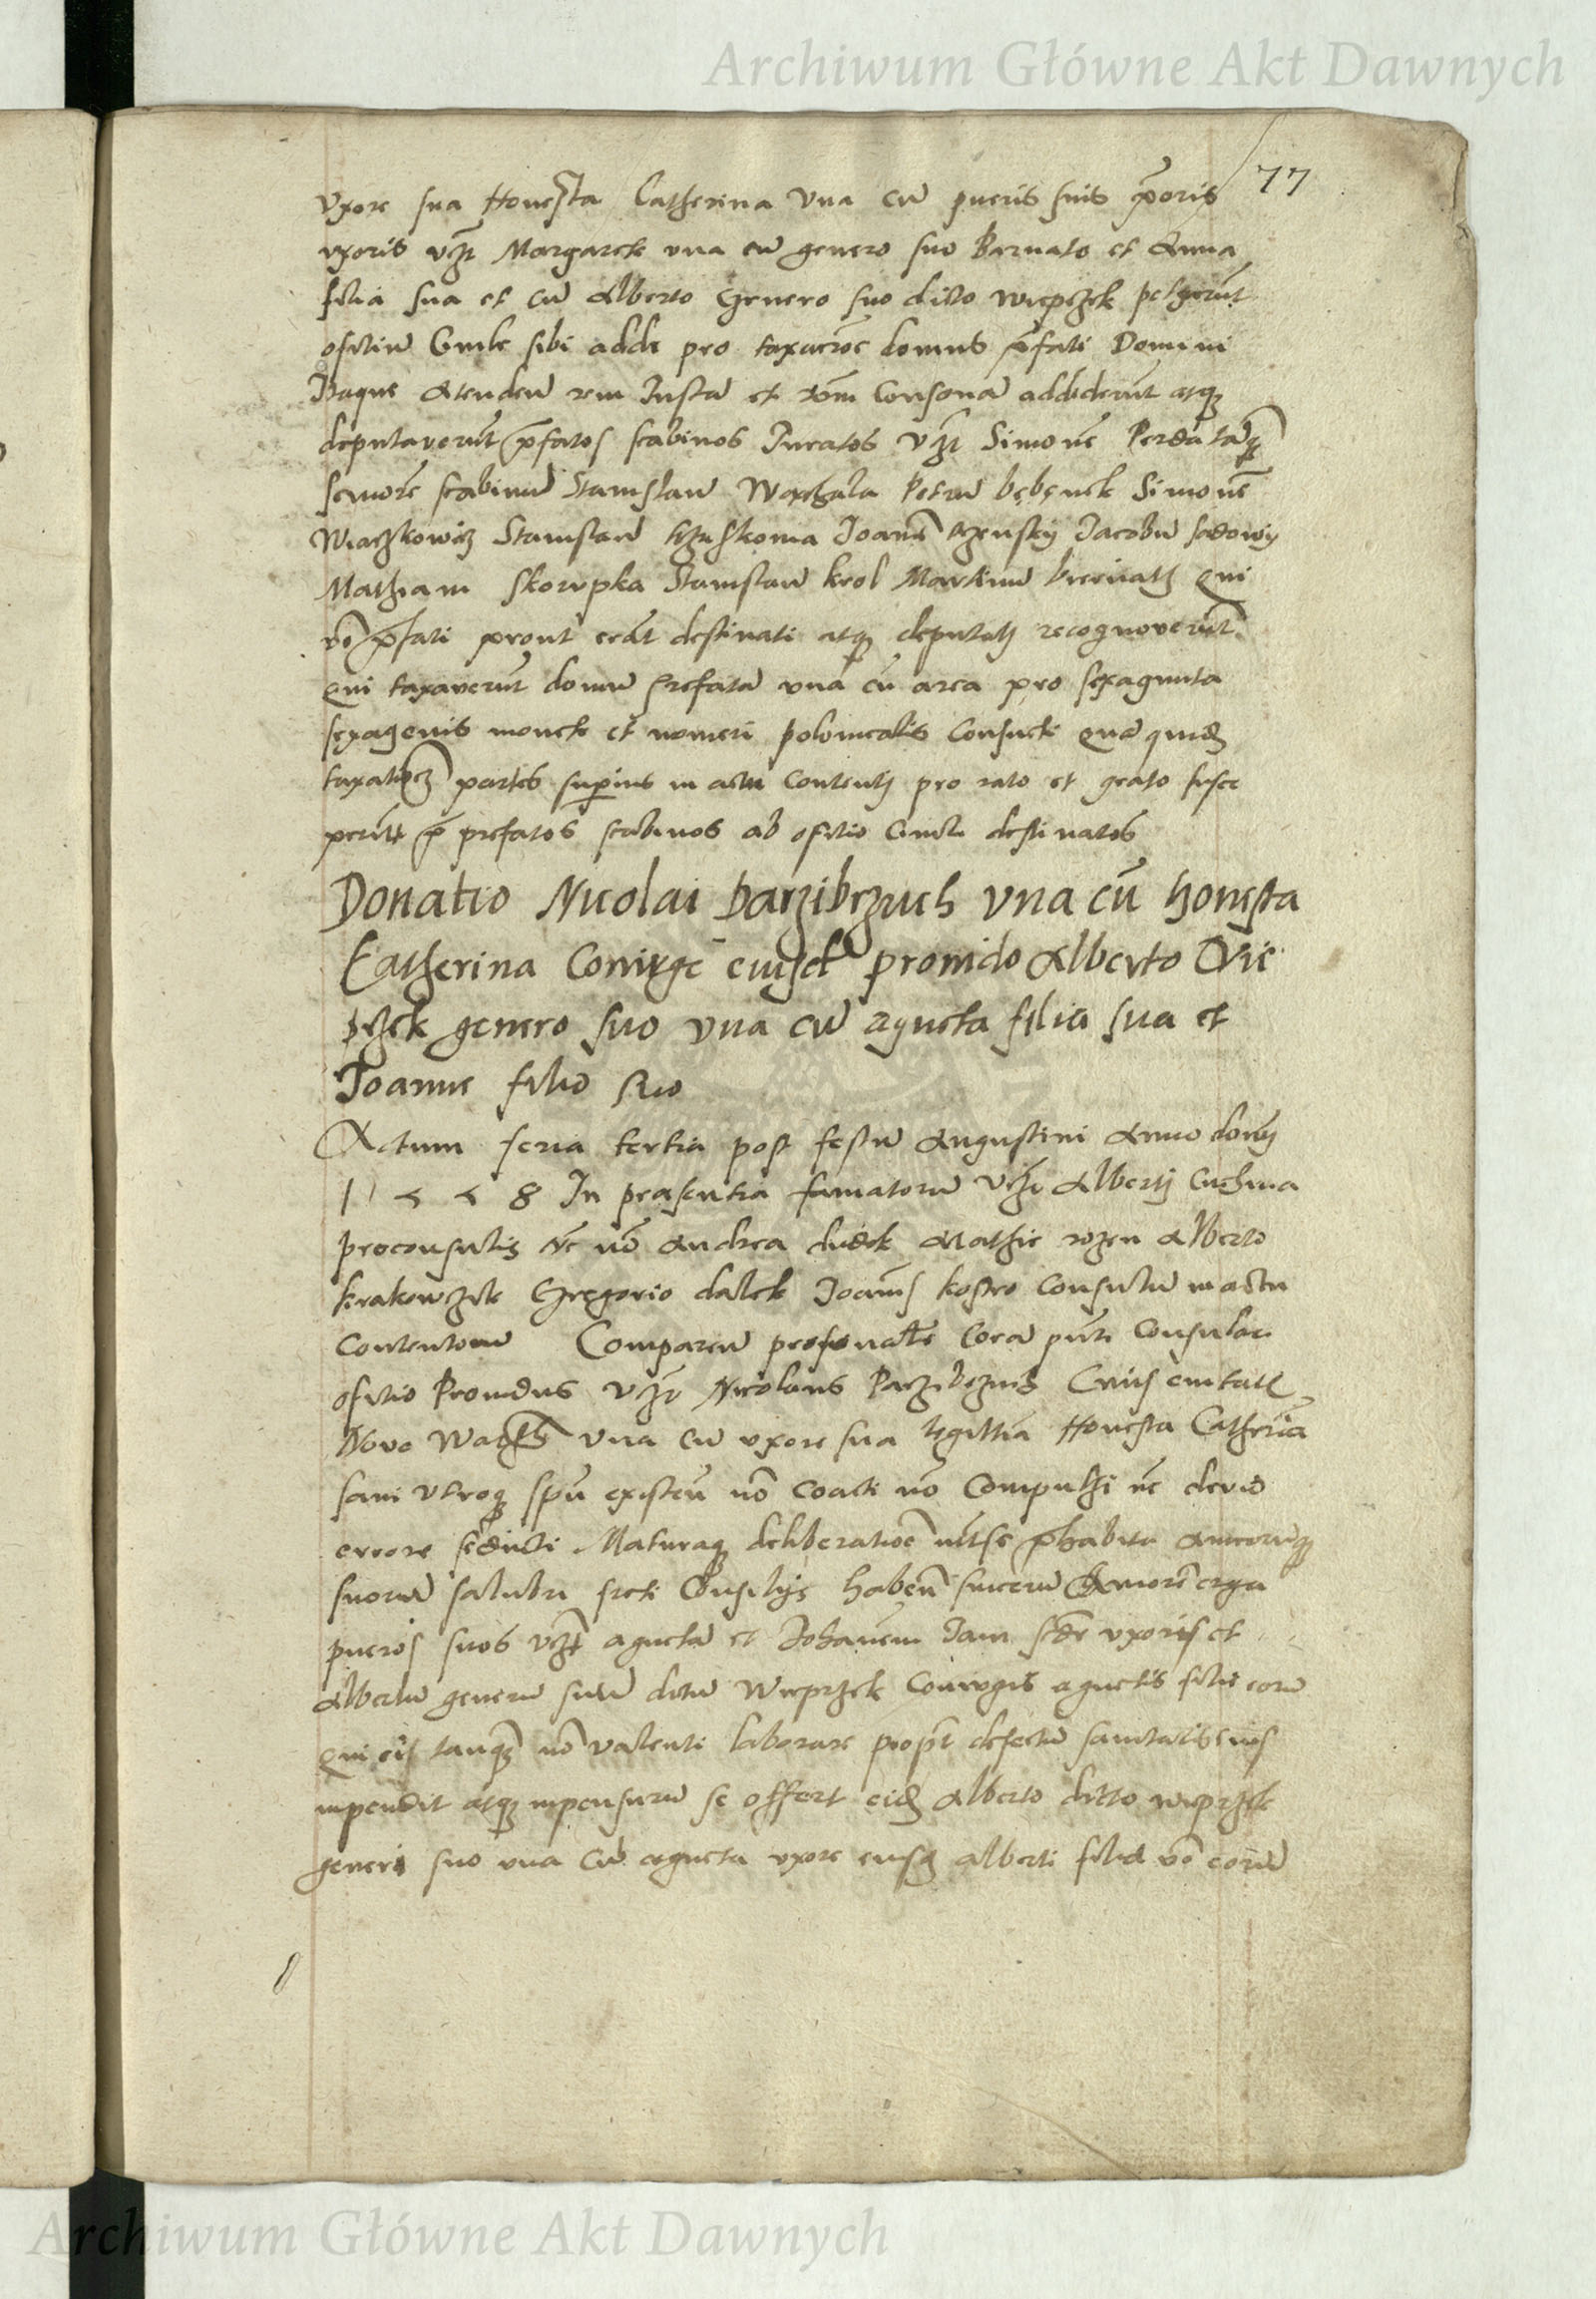 Archiwum Główne Akt Dawnych
77
vxore sua Honesta Catherina vna cu pueris suis prioris
vxoris vczt Margarete vna cu genero suo Bernato et Anna
filia sua et cu Alberto Genero suo dicto wiepczek petgerut
ofitiu Civile sibi addi pro taxacioe domus pfati Domini
Itaque Atenden rem Justa et roni Consona addiderunt atq
deputaverut pfatos scabinos Juratos vczt Simone
seniore scabinu Stanislau Petru bębenek Simone
Stanislau Joane Jacobu sadowy
Mathiam Skorupka Stanislau krol Martinu biernath Qui
vo pfati prout erat destinati atq deputatj recognoverut
Qui taxaverut domu prefata vna cu area pro sexaginta
sexagenis monete et numeri polonicalis Consuete qua quid
taxatioe partes superius in actu Contentj pro rato et grato susce
perut p prefatos scabinos ab ofitio Civili destinatos
Donatio Nicolai parzibrzuch vna cu honesta
Catherina Coniuge eiusd prouido Alberto Wie
przek genero suo vna cu agneta filia sua et
Joanne filio suo
Actum feria tertia post festu Augustini Anno domj
1 5 5 8 In praesentia famatoru vczt Albertj Cuchma
proconsulis Nec no Andrea dudek Mathie rozen Alberto
krakowczik Gregorio dalek Joanis kostro Consulu in actu
Contentoru Comparen personalte Cora pnti Consulari
ofitio Prouidus vczt Nicolaus Parzibrzuch Civis civitatis
Nove vna cu vxore sua legittia Honesta Catherina
sani vtroq spu existen no Coacti no Compulsi nec devio
errore seducti Maturaq deliberatioe intse phabita Amicorumq
suoru salubri freti Consilijs haben sinceru Amore erga
pueros suos vczt agneta et Johanem Jam vxoris et
Albertu generu suu dictu Wieprzek Coniugis agnetis filie eoru
Qui eis tanq no valenti laborare propt defectu sanitatis eius
inpendit atq inpensuru se offert eid Alberto dicto wieprzek
genero suo vna cu agneta vxore eiusd alberti filia vo eoru
Archiwum Główne Akt Dawnych